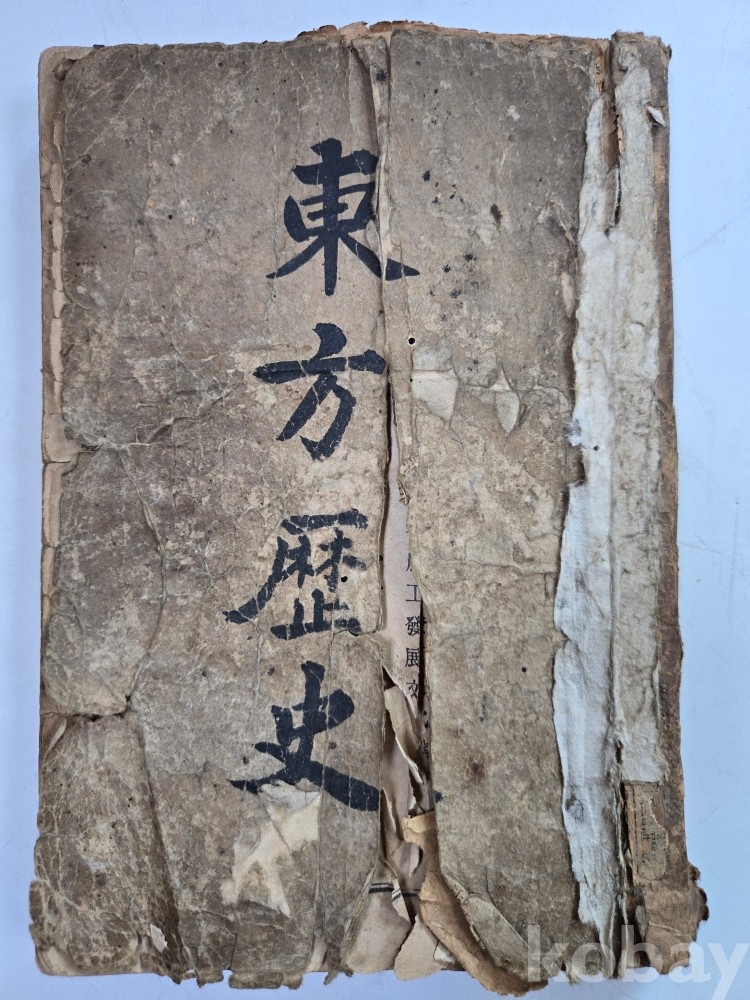 東方歷史
工發展
kobay